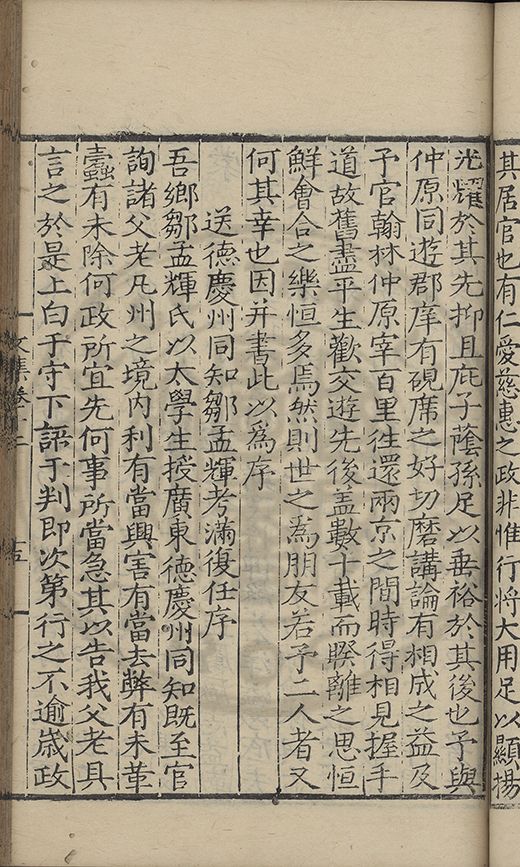 其居官也有仁愛慈惠之政非惟行將大用足以顯揚
光耀於其先抑且庇子蔭孫足以垂裕於其後也予與
仲原同遊郡庠有硯席之好切磨講論有相成之益及
予官翰林仲原宰百里徃還兩京之間時得相見握手
道故舊盡平生歡交遊先後盖數十載而睽離之思恒
鮮會合之樂恒多焉然則世之為朋友若予二人者又
何其幸也因并書此以為序
送德慶州同知鄒孟輝考滿復任序
吾鄉鄒孟輝氏以太學生授廣東德慶州同知既至官
詢諸父老凡州之境内利有當興害有當去弊有未革
蠹有未除何政所宜先何事所當急其以告我父老具
言之於是上白于守下諮于判即次第行之不逾歲政
文集卷十二
十五